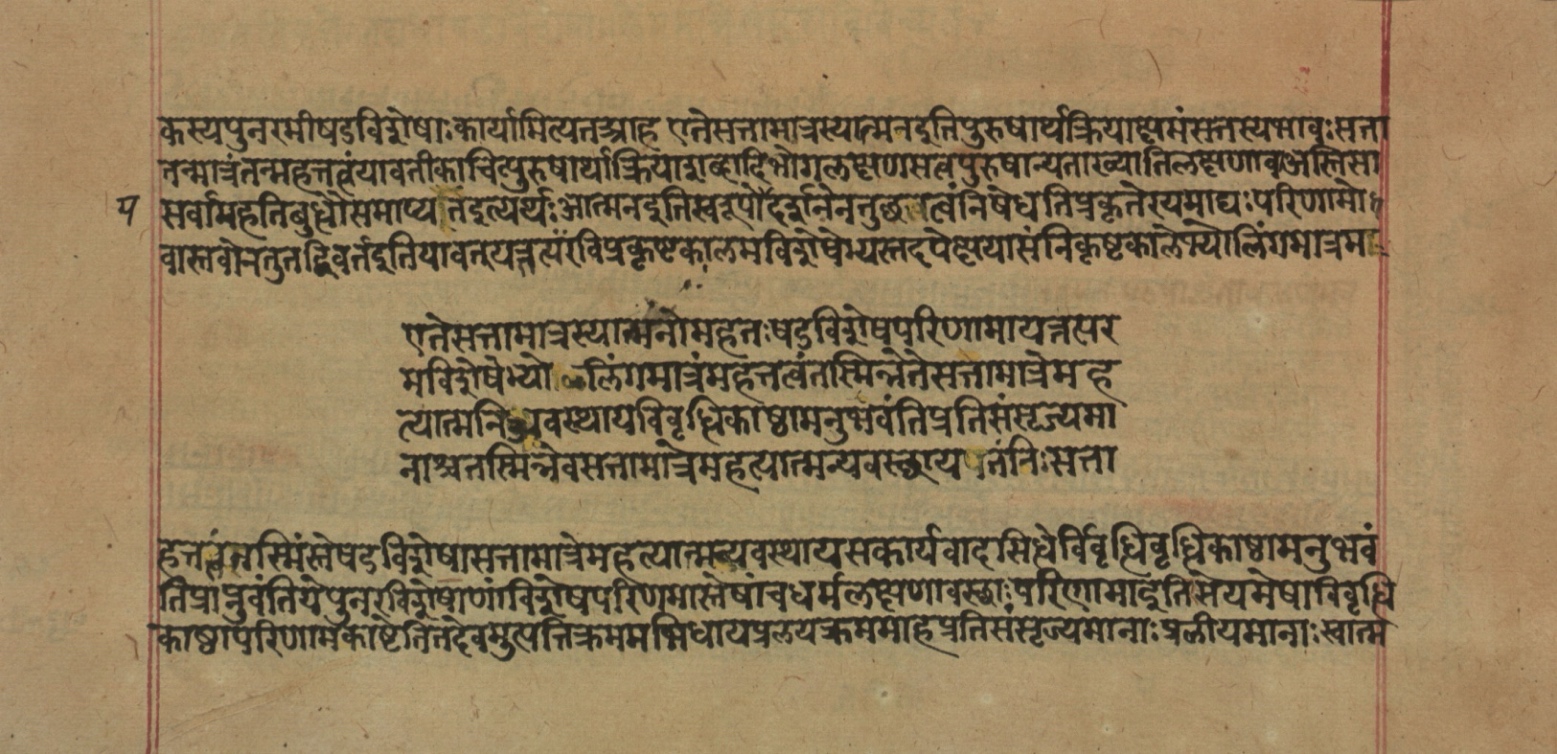 कस्यपुनरमीषडविशेषाःकार्यामित्यतआह एतेसत्तामात्रस्यात्मनइतिपुरुषार्थक्रियाक्षमंसत्तस्यभावःसत्ता
तन्मात्रंतन्महत्तत्वंयावतीकाचित्पुरुषार्थाक्रियाशब्दादिभोगलक्षणासत्वपुरुषान्यताख्यातिलक्षणावाअस्तिसा
सर्वामहतिबुधौसमाप्यतइत्यर्थःआत्मनइतिस्वरूपोदर्शनेनतुछत्वंनिषेधतिप्रकृतेरयमाद्यःपरिणामो
वास्तवोनतुतद्विवर्तइतियावत्यत्तत्परंविप्रकृष्टकालमविशेषेभ्यस्तदपेक्षयासंनिकृष्टकालेभ्योलिंगमात्रम
५
एतेसत्तामात्रस्यात्मनोमहतःषडविशेषपरिणामायत्तत्पर
मविशेषेभ्यो लिंगमात्रंमहत्तत्वंतस्मिन्नेतेसत्तामात्रेमह
त्यात्मनिअवस्थायविवृध्धिकाष्ठामनुभवंतिप्रतिसंसृज्यमा
नाश्चतस्मिन्नेवसत्तामात्रेमहत्यात्मन्यवस्छाययत्तंनिःसत्ता
हत्तत्वंतस्मिंस्तेषडविशेषासत्तामात्रेमहत्यात्मन्यवस्थायसत्कार्यवादसिधेर्विवृध्धिवृध्धिकाष्ठामनुभवं
तिप्राप्नुवंतियेपुनरविशेषाणांविशेषपरिणामास्तेषांचधर्मलक्षणावस्छाःपरिणामाइतिसेयमेषांविवृध्धि
काष्ठापरिणामकाष्टेतितदेवमुत्पत्तिक्रममभिधायप्रलयक्रममाहप्रतिसंसृज्यमानाःप्रलीयमानाःस्वात्म